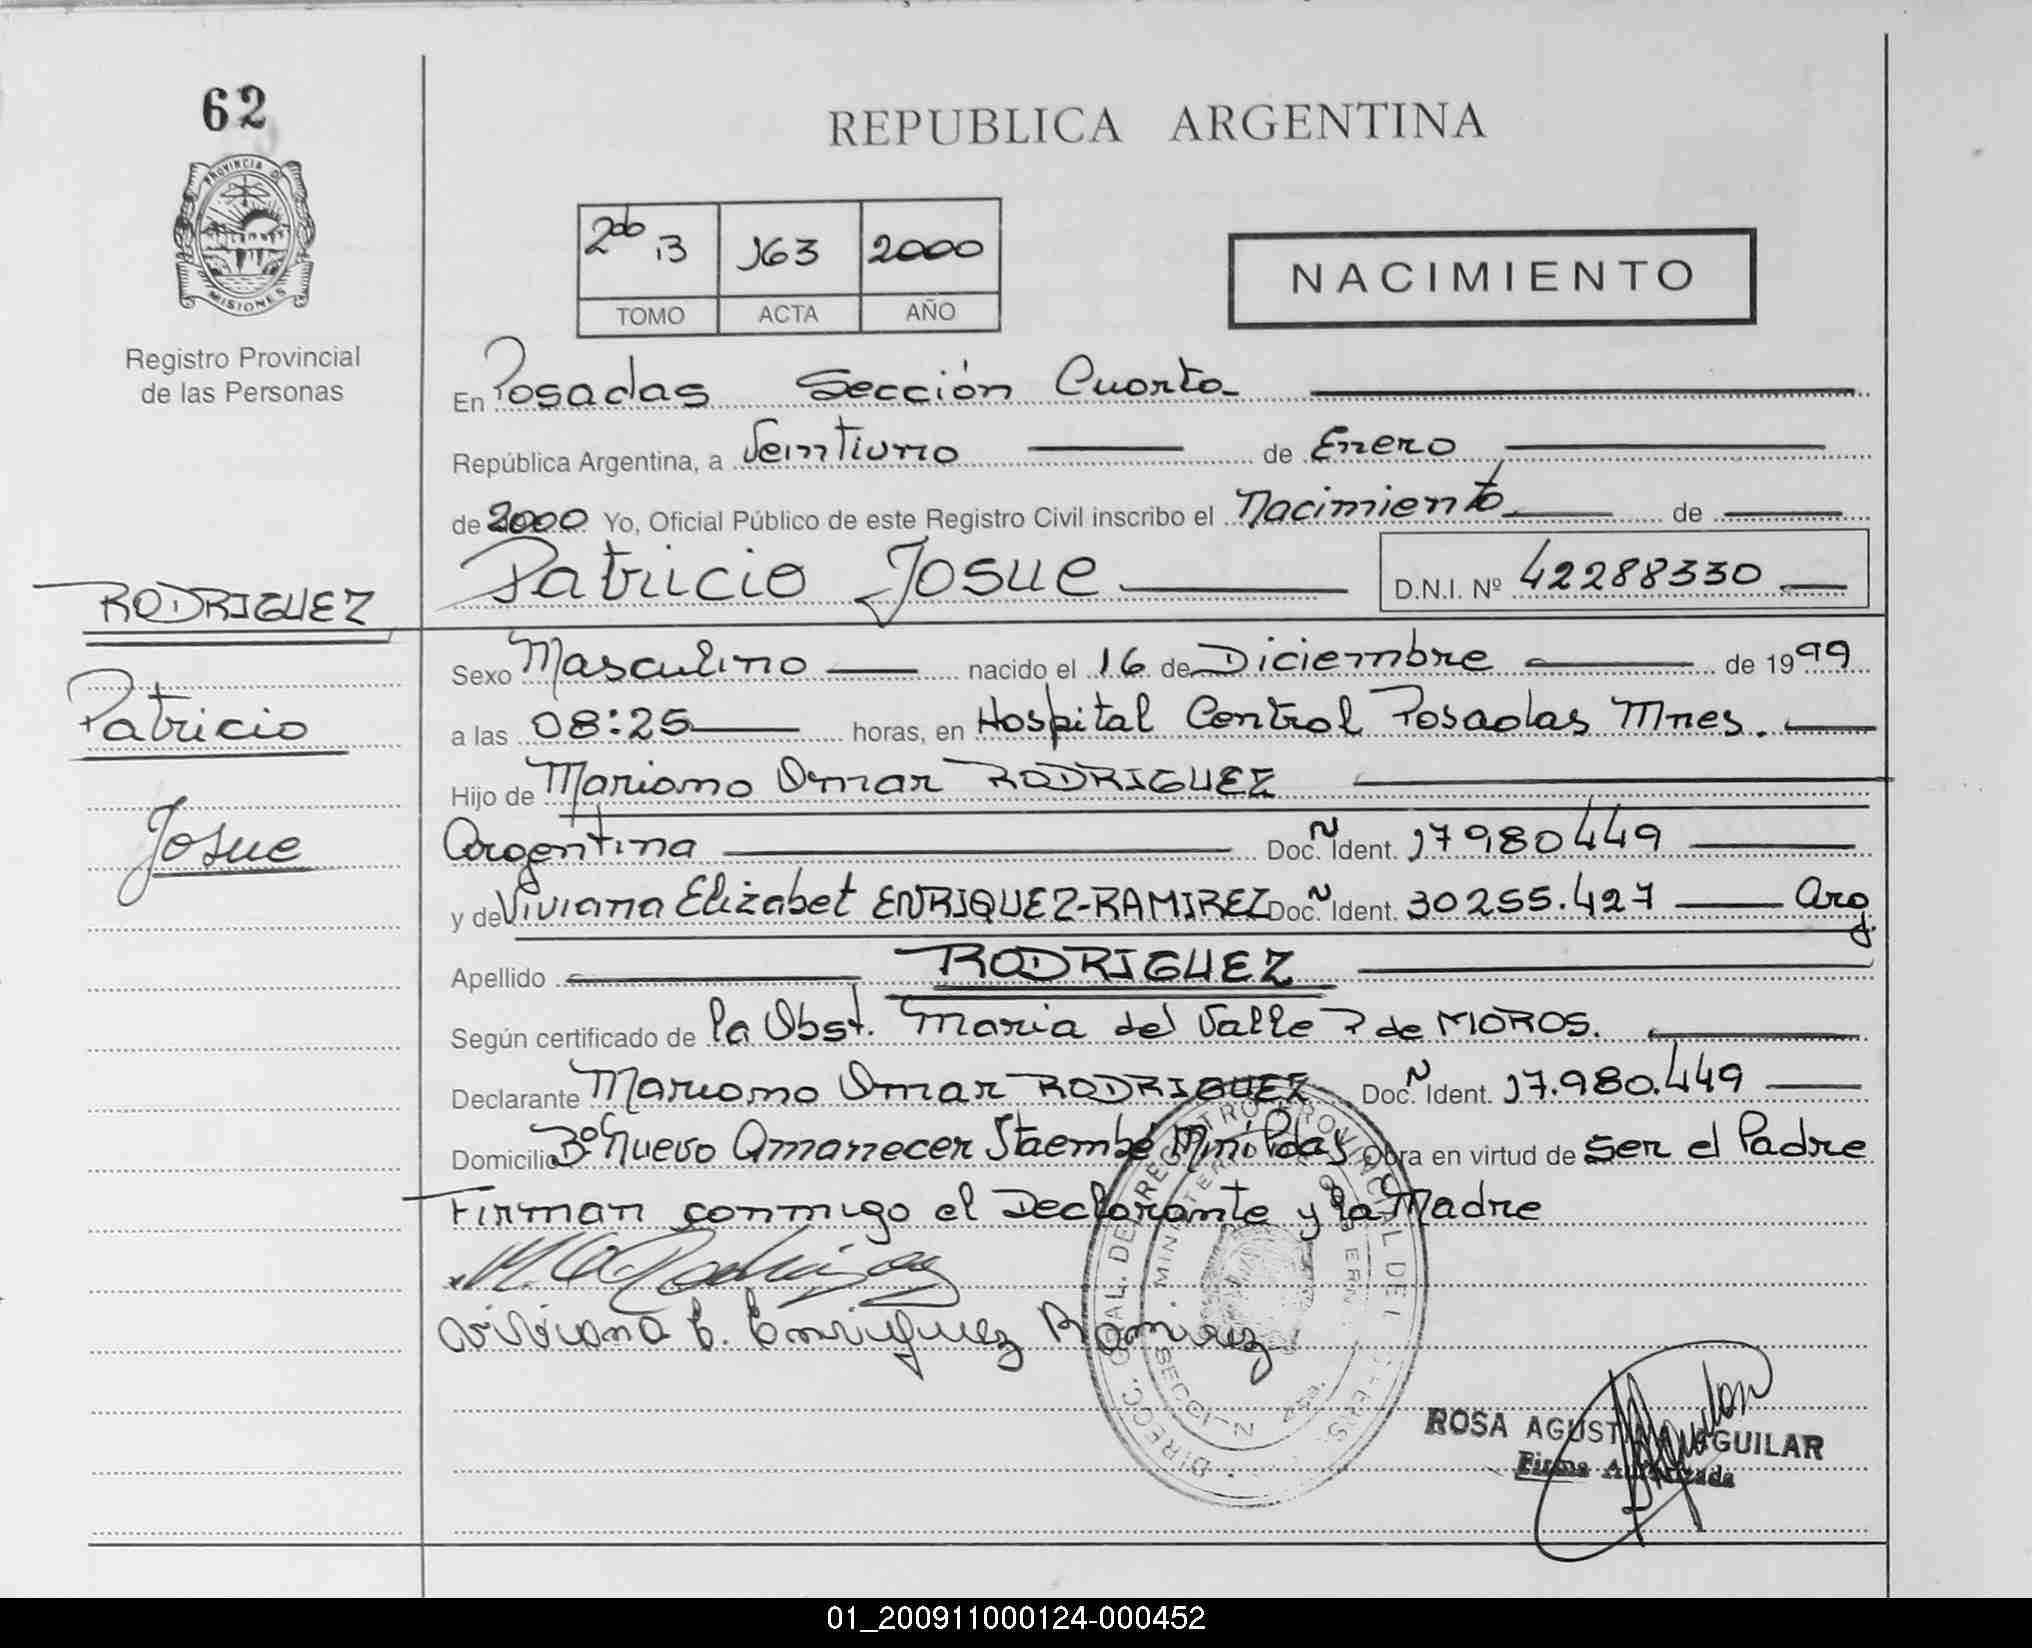 62
PROVINCIA DE
MISIONES
Registro Provincial
de las Personas
RODRIGUEZ
Patricio
Josue
REPUBLICA ARGENTINA
2do 13 163 2000
TOMO ACTA AÑO
NACIMIENTO
En Posadas Sección Cuarta
República Argentina, a Veintiuno de Enero
de 2000 Yo, Oficial Público de este Registro Civil inscribo el Nacimiento de
Patricio Josue D.N.I. Nº 42288330
Sexo Masculino nacido el 16 de Diciembre de 1999
a las 08:25 horas, en Hospital Central Posadas Mnes.
Hijo de Mariano Omar RODRIGUEZ
Argentina Doc. N Ident. 17980449
y de Viviana Elizabet ENRIQUEZ-RAMIREZ Doc. N Ident. 30255.427 Arg.
Apellido RODRIGUEZ
Según certificado de la Obst. Maria del Valle P de MOROS.
Declarante Mariano Omar RODRIGUEZ Doc. N Ident. 17.980.449
Domicilio Bº Nuevo Amanecer Itaembé Miní Pdas Obra en virtud de ser el Padre
Firman conmigo el Declarante y la Madre
M. O. Rodriguez
Viviana E. Enriquez Ramirez
DIRECC. GRAL. DE REGISTRO PROVINCIAL DE
MINISTERI GOBIERN
SECCION 4ta.
ROSA AGUSTINA AGUILAR
Firma Autorizada
01_200911000124-000452